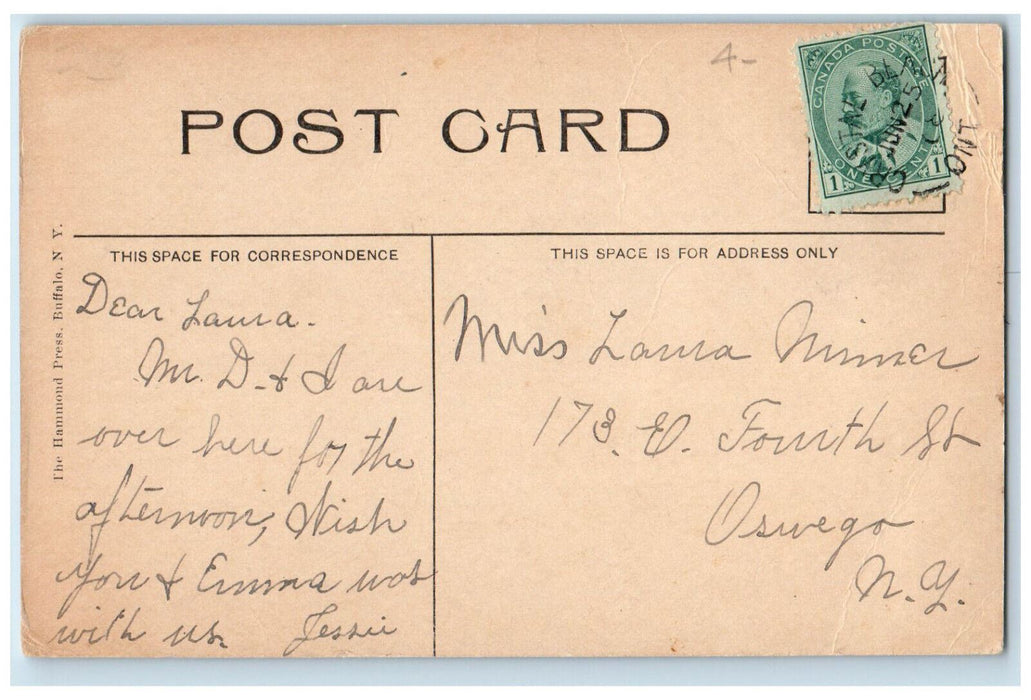 4-
POST CARD
CANADA POSTAGE
1 ONE CENT 1
CRYSTAL BEACH
JUN 25
ONT
THIS SPACE FOR CORRESPONDENCE
THIS SPACE IS FOR ADDRESS ONLY
The Hammond Press, Buffalo, N Y.
Dear Laura.
Mr. D. & I are
over here for the
afternoon, Wish
you & Emma was
with us.
Jessie
Miss Laura
173 E. Fourth St
Oswego
N.Y.